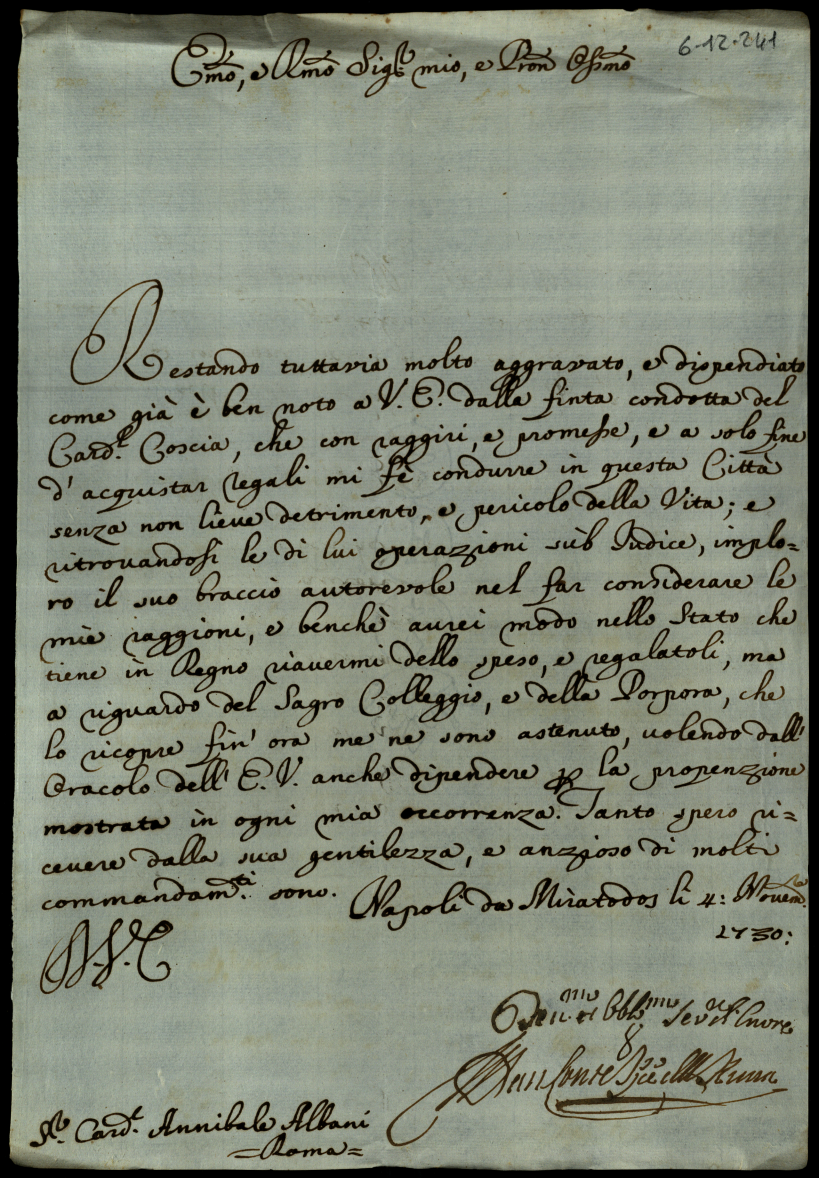 6-12-241
Emo, e Rmo Sigr mio, e Pron Ossmo
Restando tuttavia molto aggravato, e dispendiato
come già è ben noto a V. E. dalla finta condotta del
Card.l Coscia, che con raggiri, e promesse, e a solo fine
d' acquistar regali mi fè condurre in questa Città
senza non lieve detrimento, e pericolo della Vita; e
ritrovandosi le di lui operazioni sùb Iudice, implo=
ro il suo braccio autorevole nel far considerare le
mie raggioni, e benchè aurei modo nello Stato che
tiene in Regno riavermi dello speso, e regalatoli, ma
a riguardo del Sagro Colleggio, e della Porpora, che
lo ricopre fin' ora me ne sono astenuto, volendo dall'
Oracolo dell' E. V. anche dipendere p la propenzione
mostrata in ogni mia occorrenza. Tanto spero ri=
cevere dalla sua gentilezza, e anzioso di molti
commandam.ti sono. Napoli da Miratodos li 4: Novem.
1730:
Conte
Sr. Card.l Annibale Albani
=Roma=